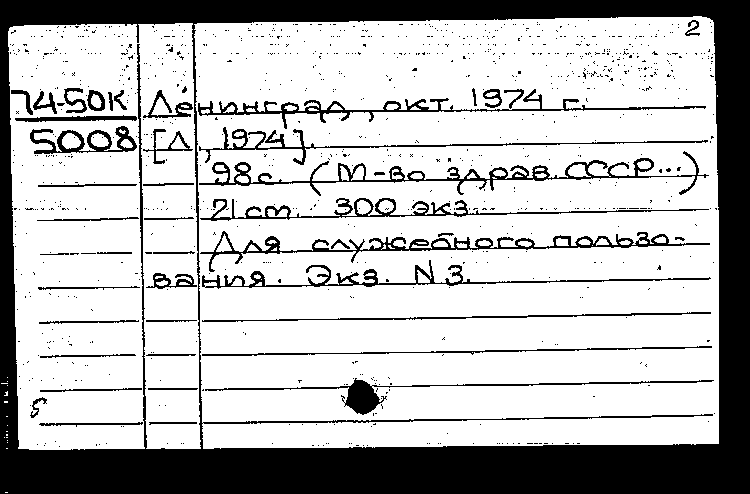 2
74-50К Ленинград, окт. 1974 г.
5008 [Л., 1974].
98 с. (М-во здрав. СССР...)
21 cm. 300 экз.
Для служебного пользо-
вания. Экз. N 3.